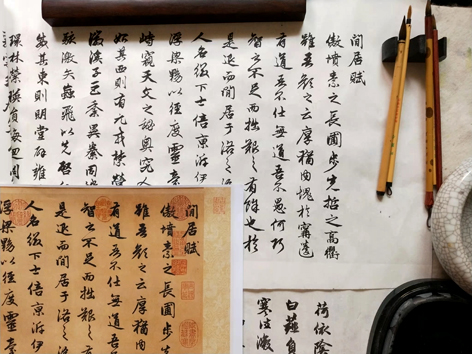 閒居賦
傲墳素之長圃步先哲之高衢
雖吾顏之云厚猶內愧於甯蘧
有道吾不仕無道吾不愚何巧
智之不足而拙艱之有餘也於
是退而閒居于洛之
人名綴下士倍京泝伊
浮梁黝以徑度靈臺
峙窺天文之祕奧究人
始其西則有元戎禁營
徽溪子巨黍異絭同
駭激矢虻飛以先啓行
威其東則明堂辟雍
環林縈映圓海回
閒居賦
傲墳素之長圃步先
雖吾顏之云厚猶內
有道吾不仕無道吾
智之不足而拙艱之
是退而閒居于洛之
人名綴下士倍京泝伊
浮梁黝以徑度靈臺
荷依陰
白薤負
寒